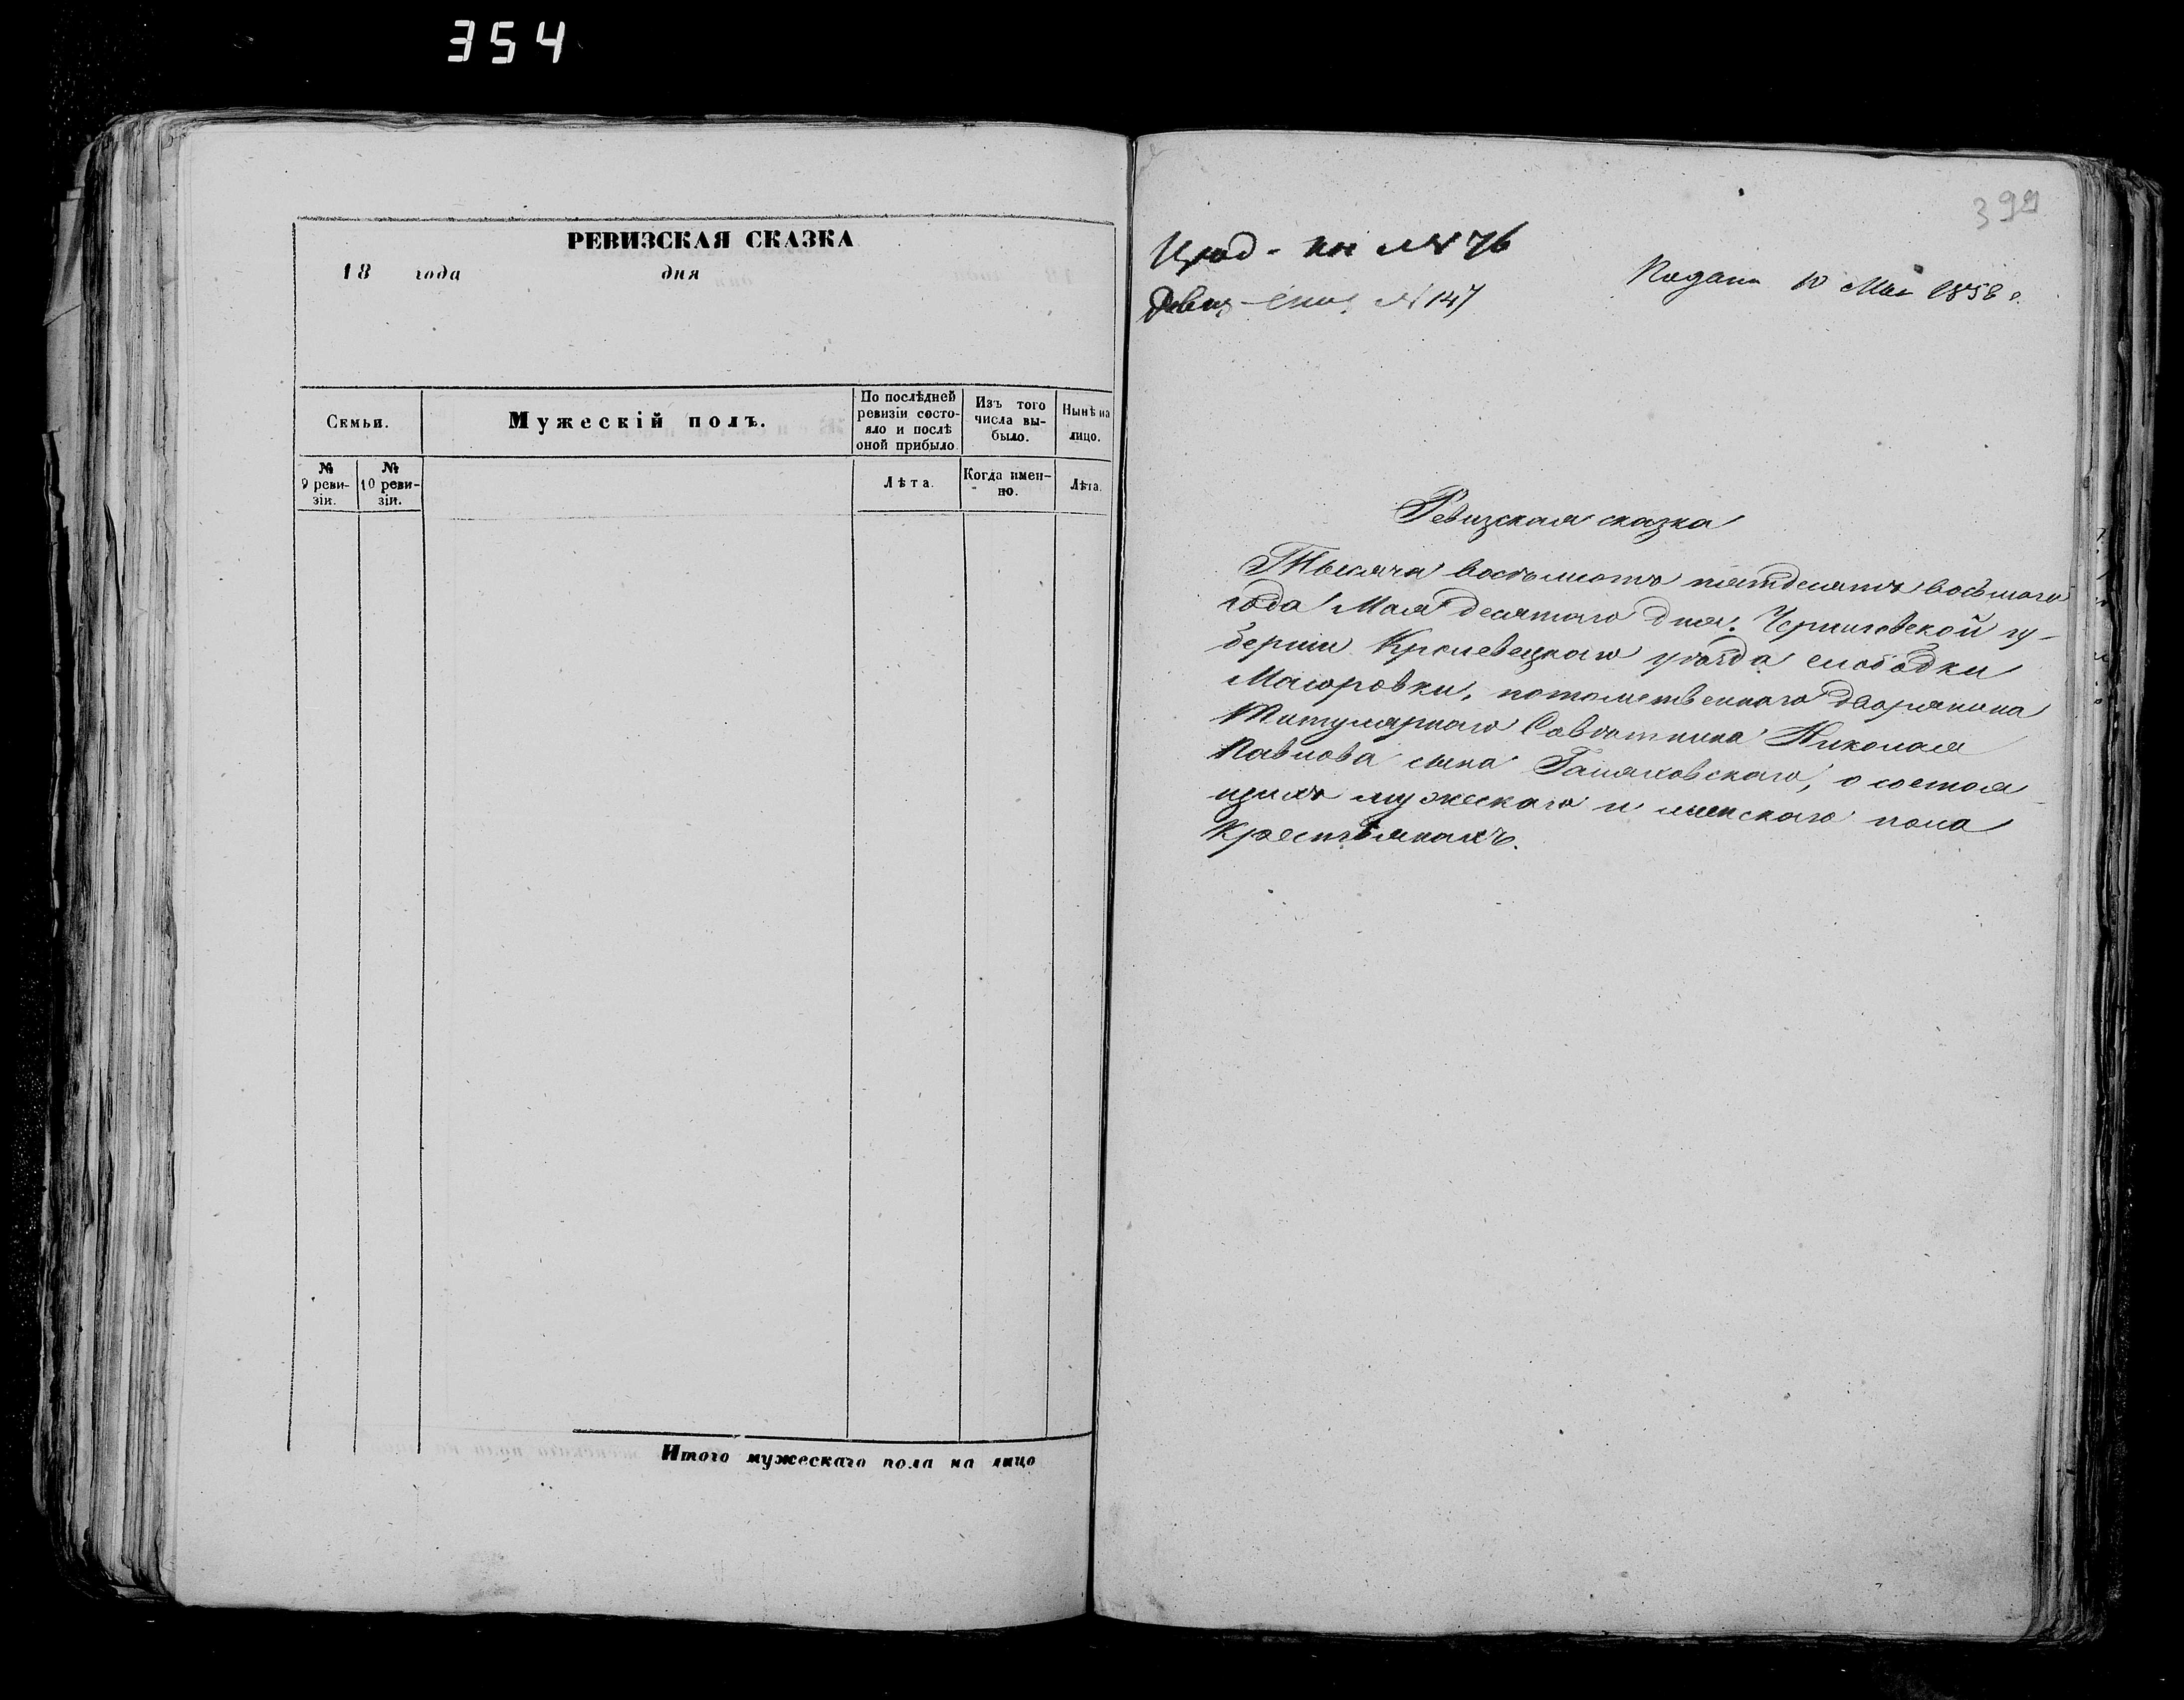 354
РЕВИЗСКАЯ СКАЗКА
18 года дня
Семьи.
Мужескій полъ.
По послѣдней ревизіи состо-
яло и послѣ оной прибыло
Изъ того числа вы-
было.
Нынѣ на лицо.
№ 9 реви-
зіи.
№ 10 реви-
зіи.
Лѣта.
Когда имен-
но.
Лѣта.
Итого мужескаго пола на лицо
399
№ 76
№ 147
Подана 10 Мая 1858 г.
Ревизская сказка
Тысяча восемьсотъ пятдесятъ восьмаго
года Мая десятаго дня. Черниговской гу-
берніи Кролевецкаго уѣзда слободки
Маіоровки, потомственнаго дворянина
Титулярнаго Совѣтника Николая
Павлова сына о состоя
щихъ мужескаго и женскаго пола
Крестьянахъ.